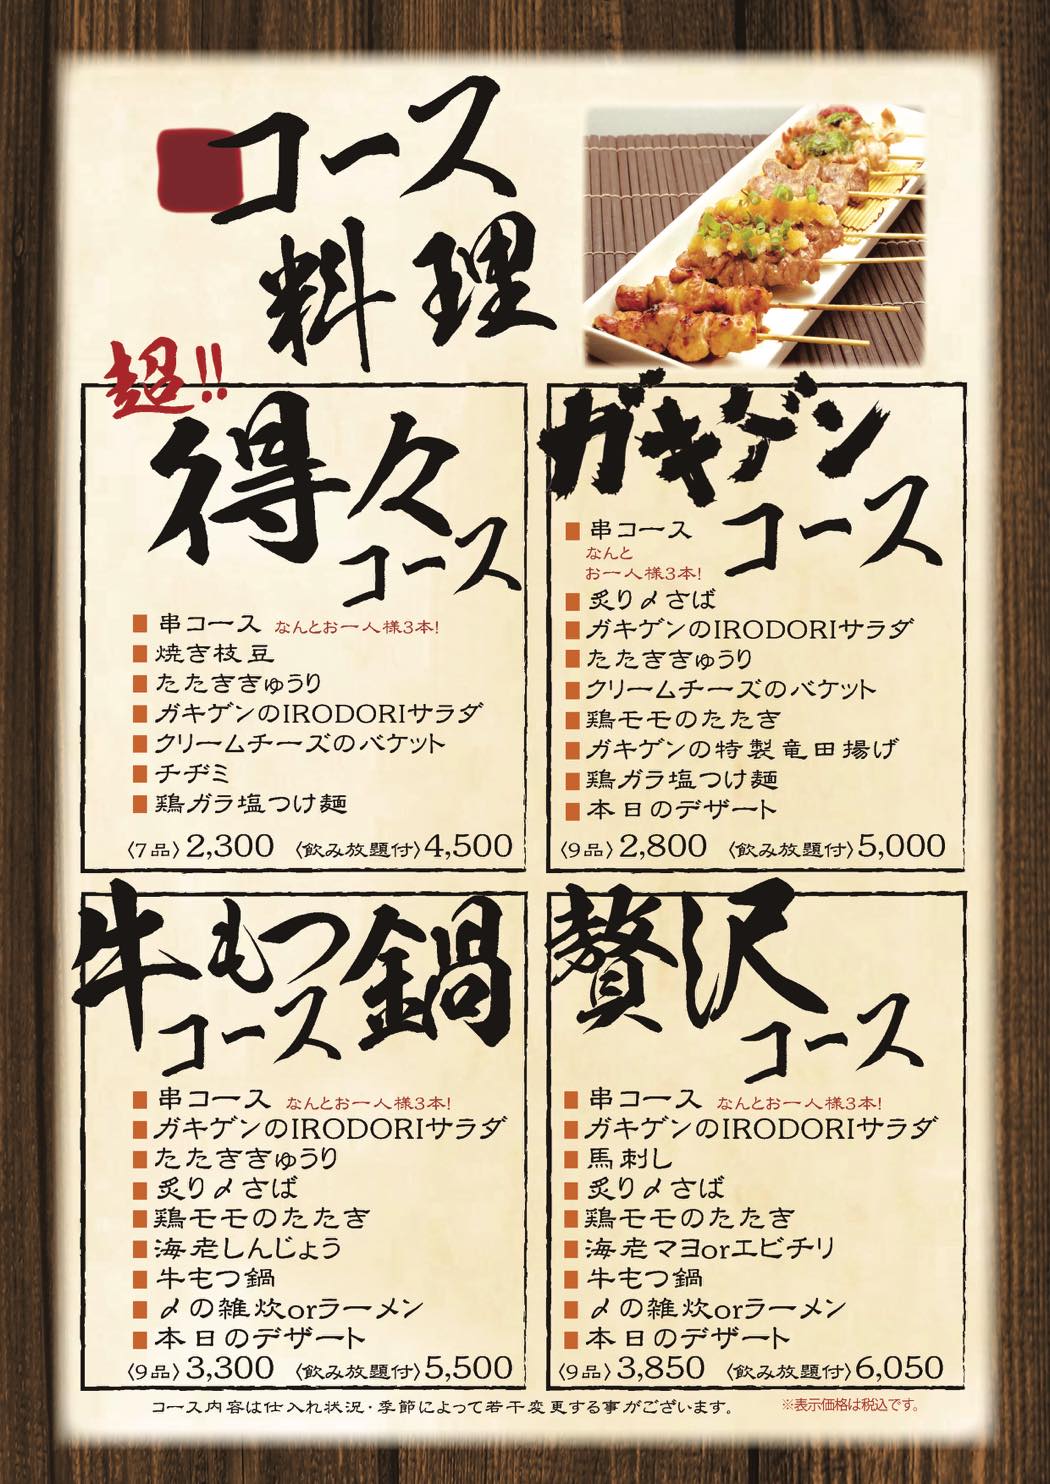 コース
料理
超!!
得々
コース
串コース なんとお一人様3本!
焼き枝豆
たたききゅうり
ガキゲンのIRODORIサラダ
クリームチーズのバケット
チヂミ
鶏ガラ塩つけ麺
〈7品〉2,300 〈飲み放題付〉4,500
ガキゲン
コース
串コース
なんと
お一人様3本!
炙り〆さば
ガキゲンのIRODORIサラダ
たたききゅうり
クリームチーズのバケット
鶏モモのたたき
ガキゲンの特製竜田揚げ
鶏ガラ塩つけ麺
本日のデザート
〈9品〉2,800 〈飲み放題付〉5,000
牛もつ鍋
コース
串コース なんとお一人様3本!
ガキゲンのIRODORIサラダ
たたききゅうり
炙り〆さば
鶏モモのたたき
海老しんじょう
牛もつ鍋
〆の雑炊orラーメン
本日のデザート
〈9品〉3,300 〈飲み放題付〉5,500
贅沢
コース
串コース なんとお一人様3本!
ガキゲンのIRODORIサラダ
馬刺し
炙り〆さば
鶏モモのたたき
海老マヨorエビチリ
牛もつ鍋
〆の雑炊orラーメン
本日のデザート
〈9品〉3,850 〈飲み放題付〉6,050
コース内容は仕入れ状況・季節によって若干変更する事がございます。
※表示価格は税込です。